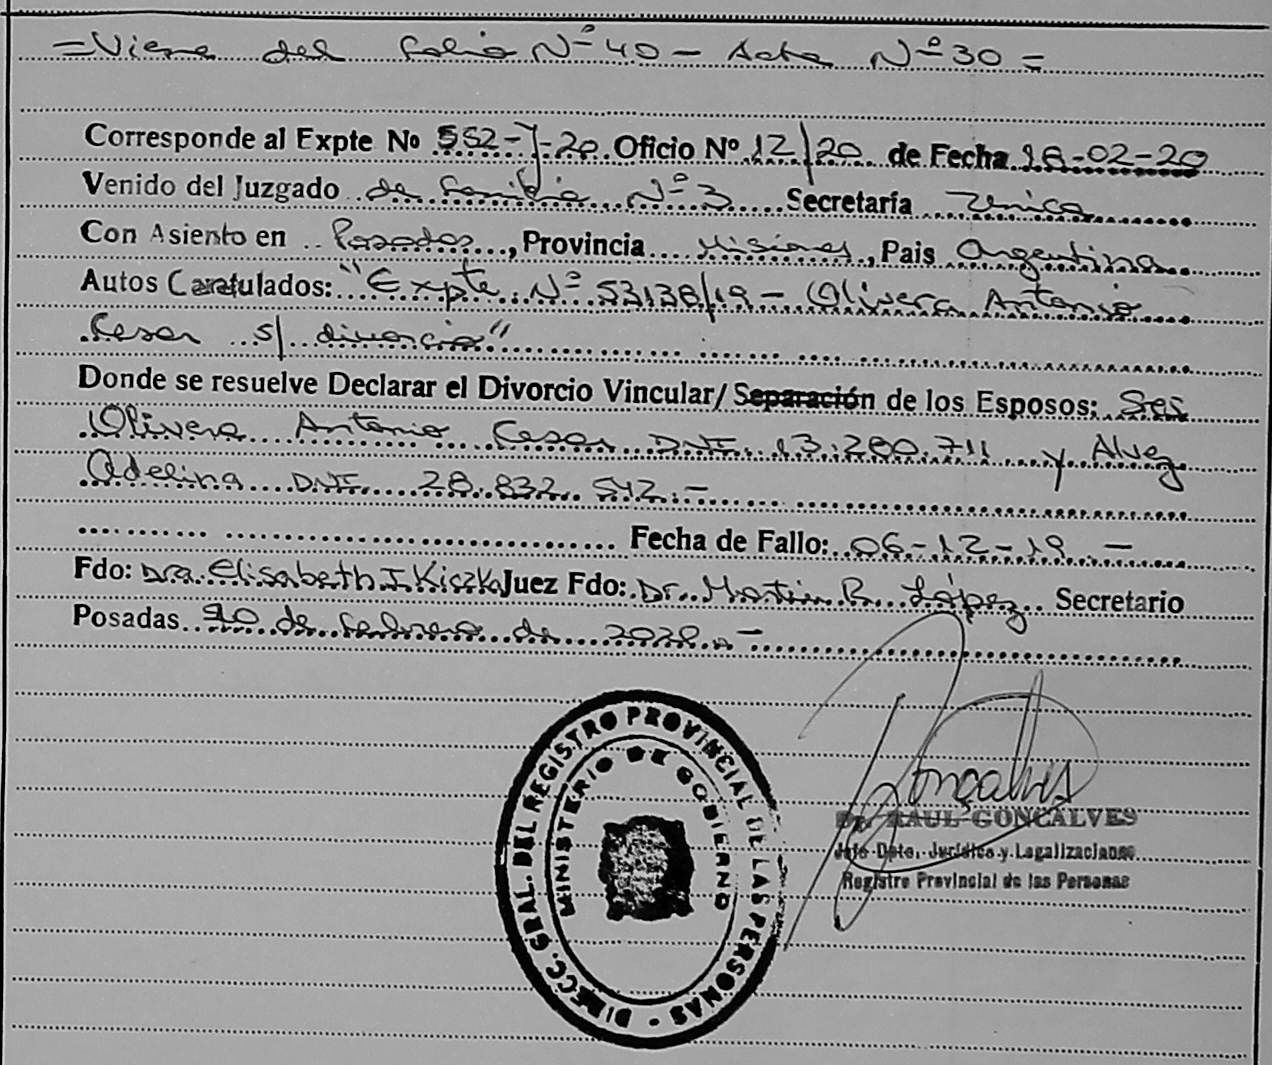 =Viene del folio Nº 40 - Acta Nº 30=
Corresponde al Expte Nº 552-J-20 Oficio Nº 12/20 de Fecha 18-02-20
Venido del Juzgado de Familia Nº 3 Secretaría Unica
Con Asiento en Posadas, Provincia Misiones, Pais Argentina
Autos Caratulados: "Expte Nº 53138/19 - Olivera Antonio
Cesar s/ divorcio"
Donde se resuelve Declarar el Divorcio Vincular/ Separación de los Esposos: Sres
Olivera Antonio Cesar DNI. 13.280.711 y Alvez
Adelina DNI. 28.832.542.-
Fecha de Fallo: 06-12-19.-
Fdo: Dra. Elisabeth I. Kiczka Juez Fdo: Dr. Martin R. López Secretario
Posadas 20 de febrero de 2020.-
DIRECC. GRAL. DEL REGISTRO PROVINCIAL DE LAS PERSONAS -
MINISTERIO DE GOBIERNO
Gonçalves
Dr. RAUL GONCALVES
Jefe Dpto. Jurídico y Legalizaciones
Registro Provincial de las Personas